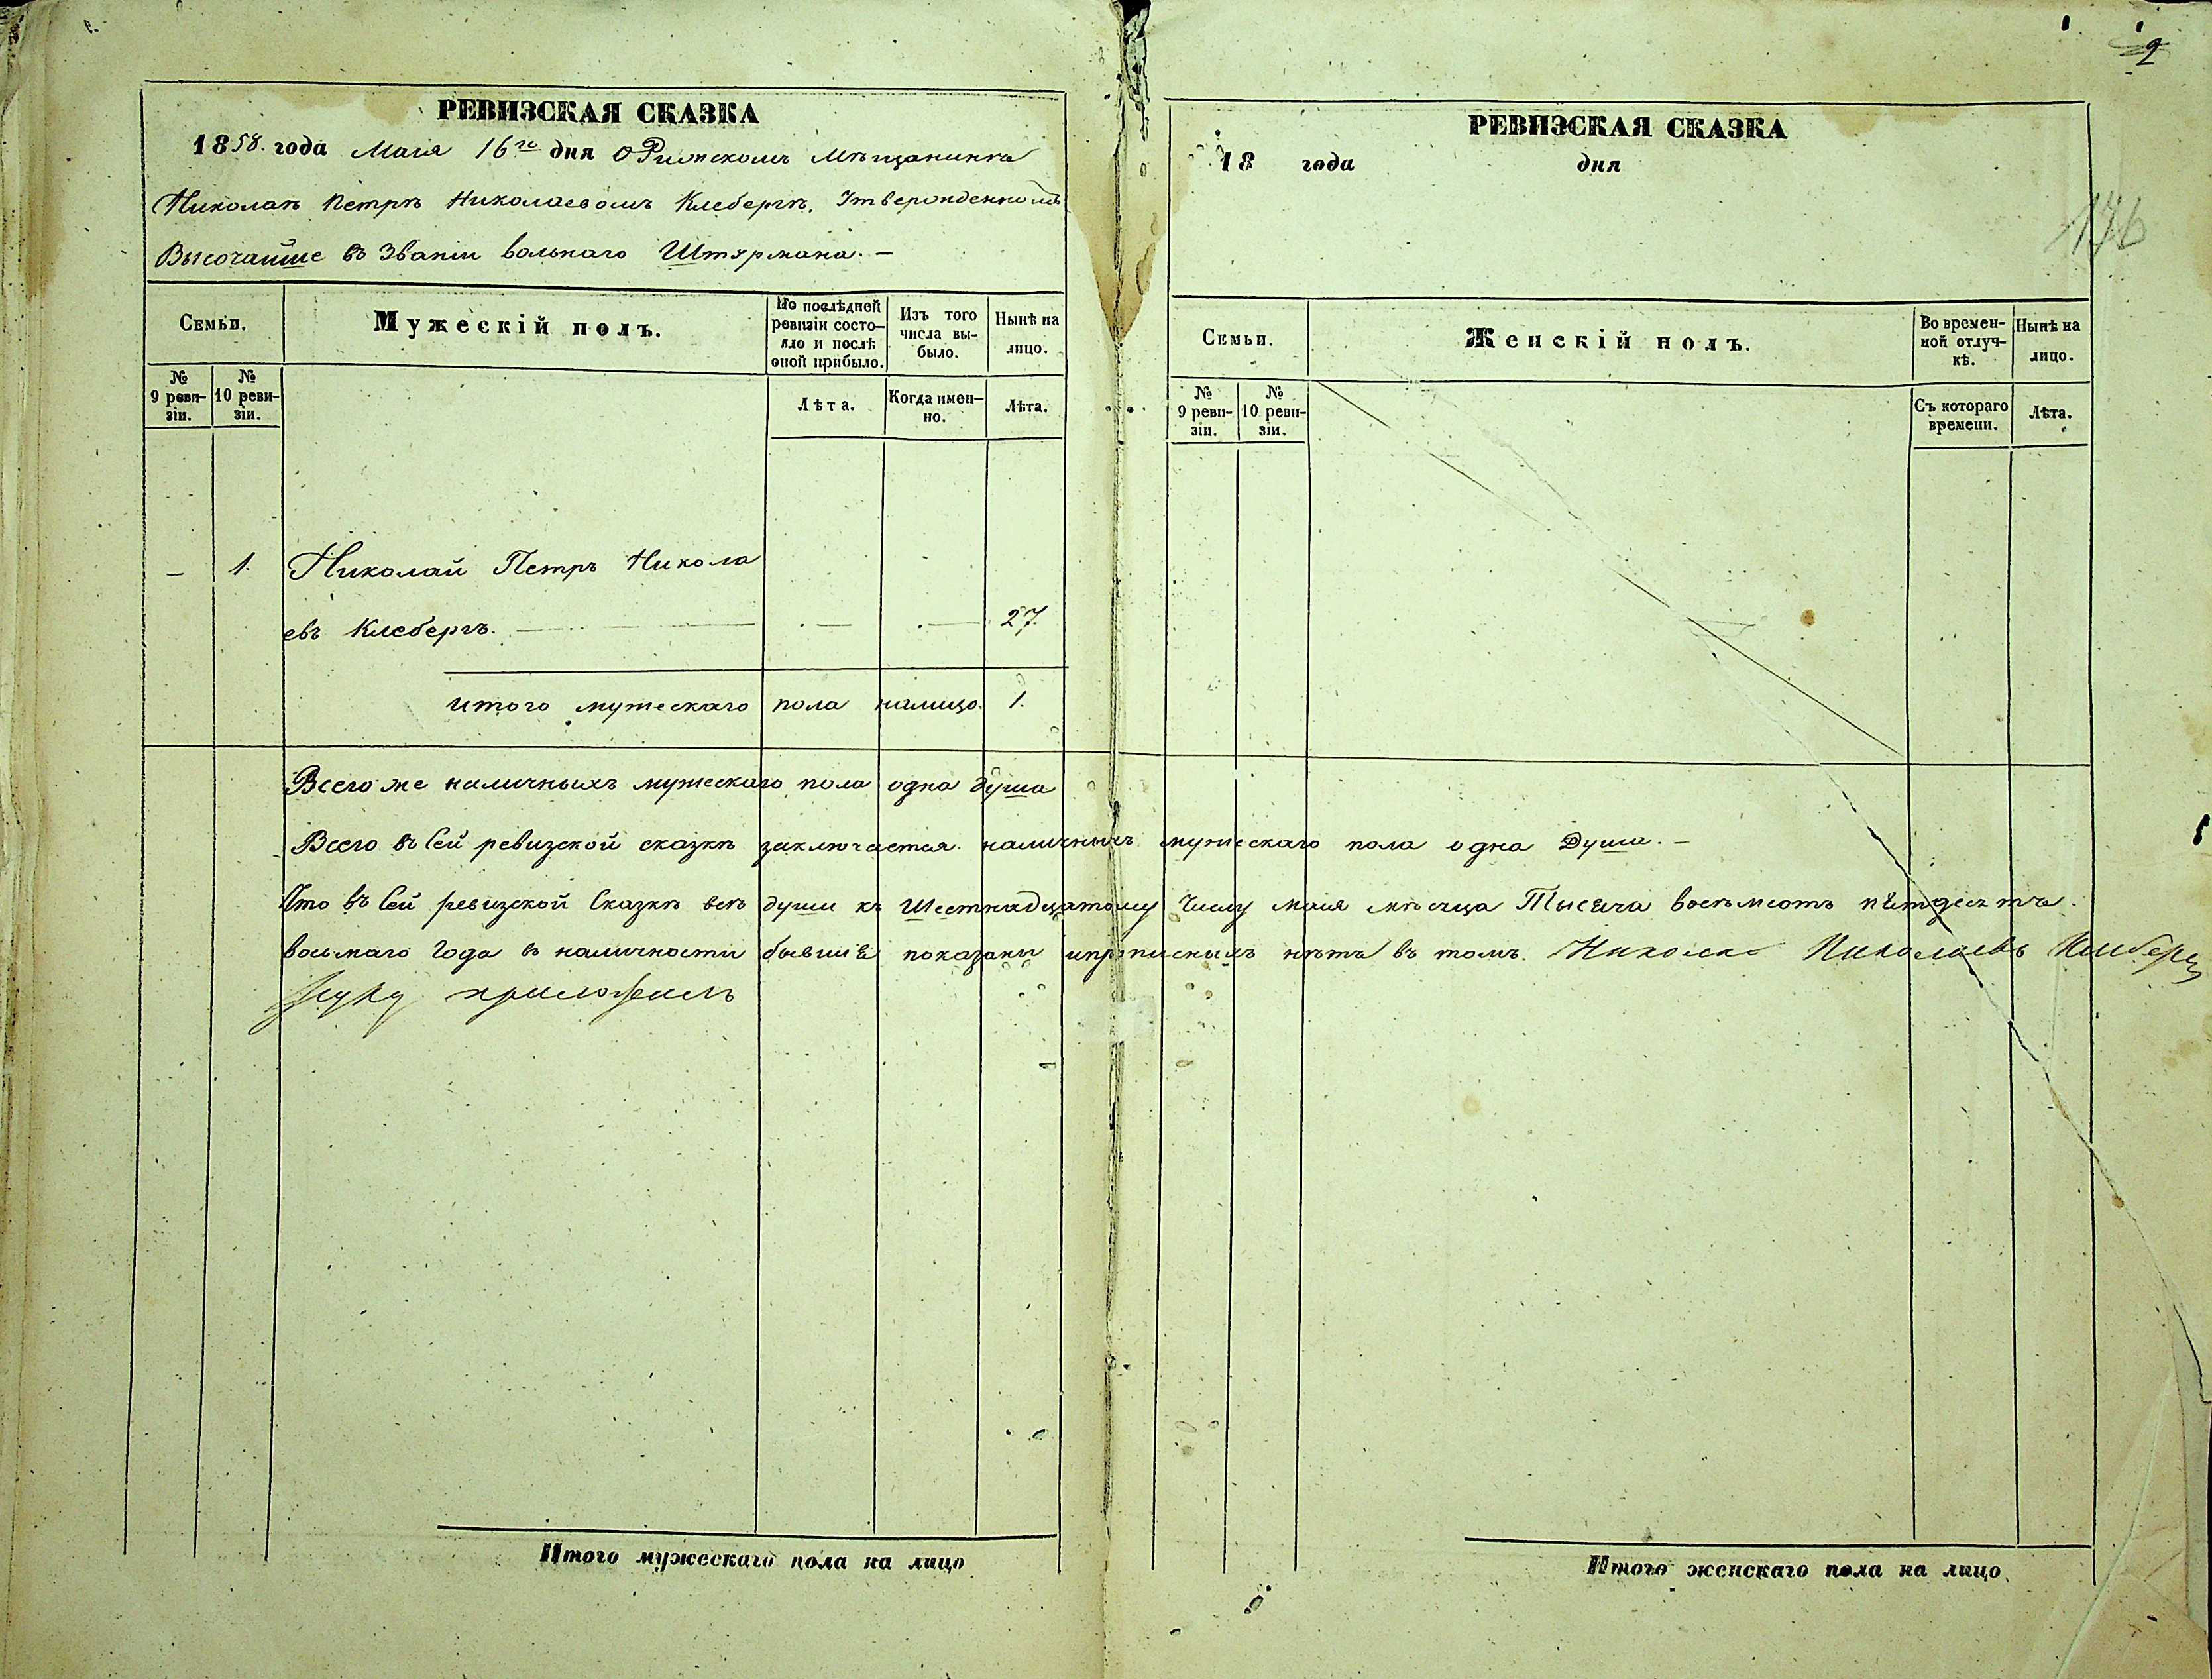 2
176
РЕВИЗСКАЯ СКАЗКА
1858. года Маія 16го дня о Рижскомъ мѣщанинѣ
Николаѣ Петрѣ Николаевомъ Клебергѣ, Утвержденномъ
Высочайше въ Званіи вольнаго Штурмана. —
Семьи.
Мужескій полъ.
По послѣдней ревизіи состо-
яло и послѣ оной прибыло.
Изъ того числа вы-
было.
Нынѣ на лицо.
№ 9 реви-
зіи.
№ 10 реви-
зіи.
Лѣта.
Когда имен-
но.
Лѣта.
— 1. Николай Петръ Никола
евъ Клебергъ. — — — 27.
итого мужескаго пола налицо. 1.
Всего же наличныхъ мужескаго пола одна душа
РЕВИЗСКАЯ СКАЗКА
18 года дня
Семьи.
Женскій полъ.
Во времен-
ной отлуч-
кѣ.
Нынѣ на лицо.
№ 9 реви-
зіи.
№ 10 реви-
зіи.
Съ котораго времени.
Лѣта.
Всего въ Сей ревизской сказкѣ заключается наличныхъ мужескаго пола одна Душа. —
Что въ Сей ревизской Сказкѣ всѣ души къ Шестнадцатому Числу маія мѣсяца Тысяча восемьсотъ пятдесятъ
восьмаго Года въ наличности бывшіе показаны и прописныхъ нѣтъ въ томъ. Николаевъ
руку приложилъ
Итого мужескаго пола на лицо
Итого женскаго пола на лицо